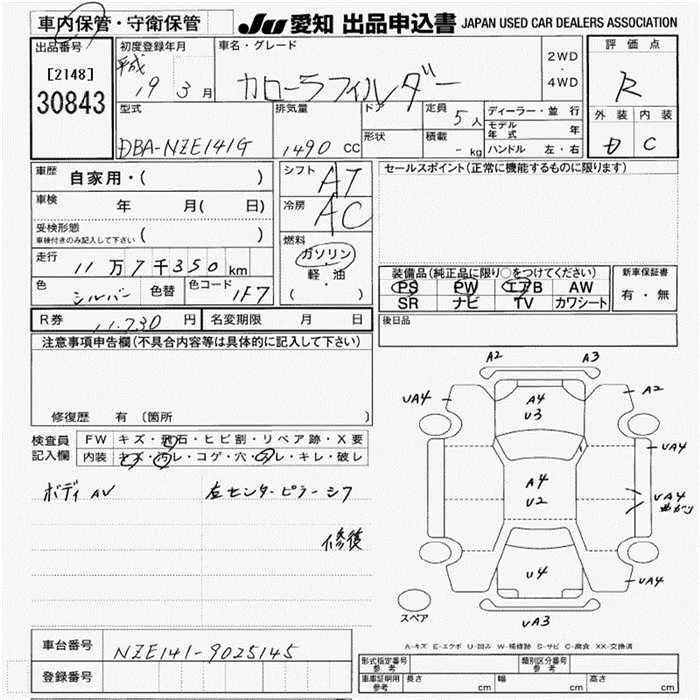 車内保管・守衛保管 JU 愛知 出品申込書 JAPAN USED CAR DEALERS ASSOCIATION
出品番号 初度登録年月 車名・グレード 2WD・4WD 評価点
[2148] 平成 19 3月 カローラフィルダー R
30843 外装 内装
D C
型式 排気量 ドア 定員 5人 ディーラー・並行
モデル年式 年
DBA-NZE141G 1490 CC 形状 積載 - kg ハンドル 左・右
車歴 自家用・( ) シフト AT セールスポイント(正常に機能するものに限ります)
車検 年 月( 日) 冷房 AC
受検形態 ( )
車検付きのみ記入して下さい
燃料 ガソリン・軽油 ( )
走行 11万7千350km
装備品(純正品に限り○をつけてください) 新車保証書
PS PW エアB AW 有・無
SR ナビ TV カワシート
色 シルバー 色替 色コード 1F7
R券 11,730 円 名変期限 月 日 後日品
注意事項申告欄(不具合内容等は具体的に記入して下さい)
修復歴 有 〔箇所 〕
検査員記入欄 FW キズ・飛石・ヒビ割・リペア跡・X要
内装 キズ・汚レ・コゲ・穴・スレ・キレ・破レ
ボディAV 左センターピラーシワ
修復
A2 A3
UA4 A4 A2
U3
UA4
A4 UA4
U2
U4 UA4
UA3
スペア
A-キズ E-エクボ U-凹み W-補修跡 S-サビ C-腐食 XX-交換済
車台番号 NZE141-9025145
登録番号
形式指定番号 参考 類別区分番号 参考
車庫証明用 参考 長さ cm 幅 cm 高さ cm